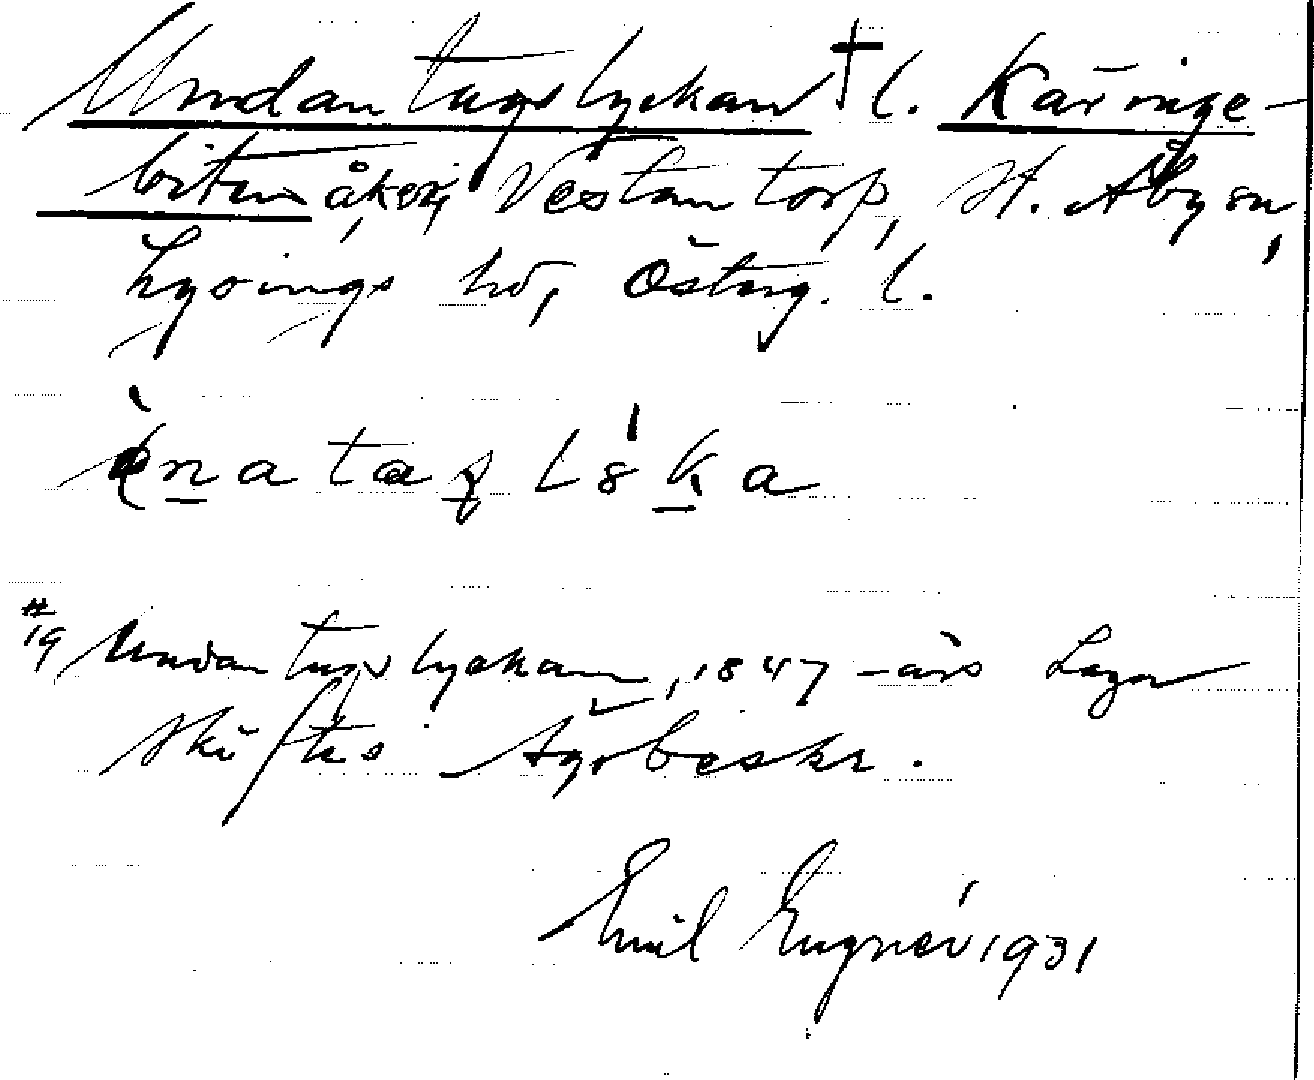 Undantagslyckan † l. Käringe-
biten åker, Västantorp, St. Åby sn,
Lysings hd, Östing. l.
Undantagslyckan, 1847 -års Laga
skiftes Ägobeskr.
Emil Eugnér 1931